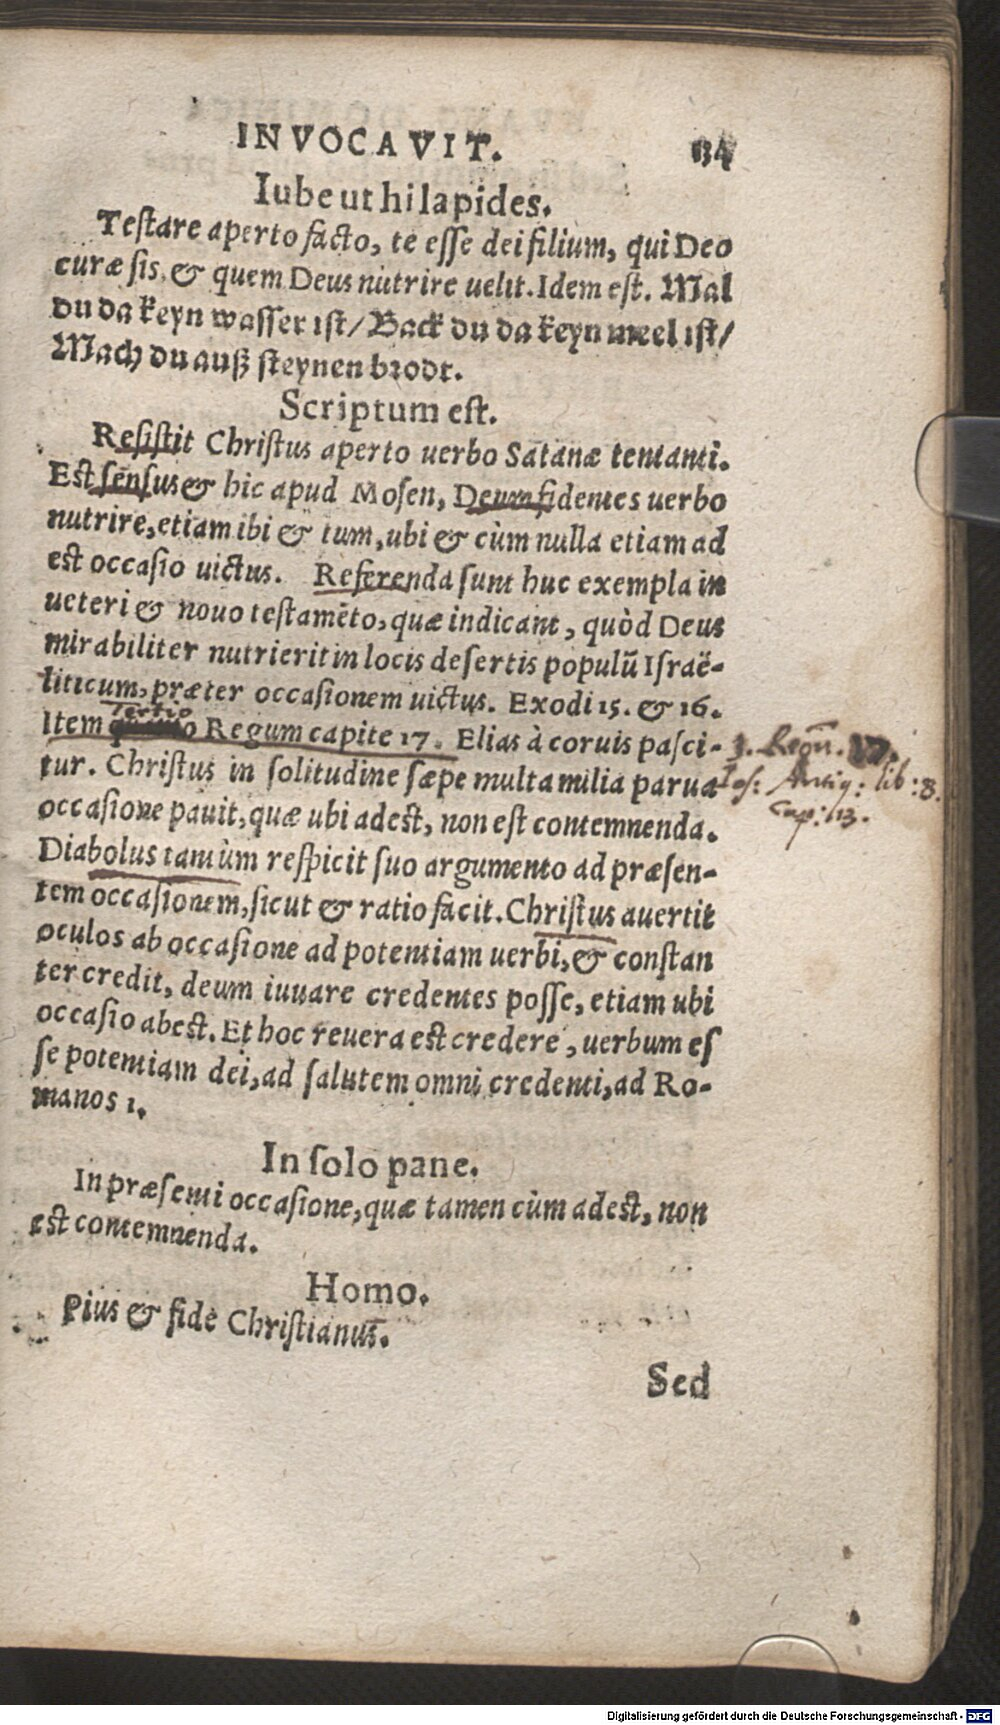 INVOCAVIT. 134
Iube ut hi lapides.
Teſtare aperto facto, te eſſe dei filium, qui Deo
curæ ſis, & quem Deus nutrire uelit. Idem eſt. Mal
du da keyn waſſer iſt/ Back du da keyn meel iſt/
Mach du auß ſteynen brodt.
Scriptum eſt.
Reſiſtit Chriſtus aperto uerbo Satanæ tentanti.
Eſt ſenſus & hic apud Moſen, Deum fidentes uerbo
nutrire, etiam ibi & tum, ubi & cùm nulla etiam ad
est occaſio uictus. Referenda ſunt huc exempla in
ueteri & nouo teſtamēto, quæ indicant, quòd Deus
mirabiliter nutrierit in locis deſertis populū Iſraë-
liticum, præter occaſionem uictus. Exodi 15. & 16.
Tertio
Item Regum capite 17. Elias à coruis paſci-
tur. Chriſtus in ſolitudine ſæpe multa milia parua
occaſione pauit, quæ ubi adeſt, non eſt contemnenda.
Diabolus tantùm reſpicit ſuo argumento ad præſen-
tem occaſionem, ſicut & ratio facit. Chriſtus auertit
oculos ab occaſione ad potentiam uerbi, & conſtan
ter credit, deum iuuare credentes poſſe, etiam ubi
occaſio abeſt. Et hoc reuera eſt credere, uerbum eſ
ſe potentiam dei, ad ſalutem omni credenti, ad Ro-
manos 1.
In ſolo pane.
In præſenti occaſione, quæ tamen cùm adeſt, non
eſt contemnenda.
Homo.
Pius & fide Chriſtianus.
Sed
3. Regū. 17.
Jos: Antiq: lib: 8.
Cap: 13.
Digitalisierung gefördert durch die Deutsche Forschungsgemeinschaft - DFG